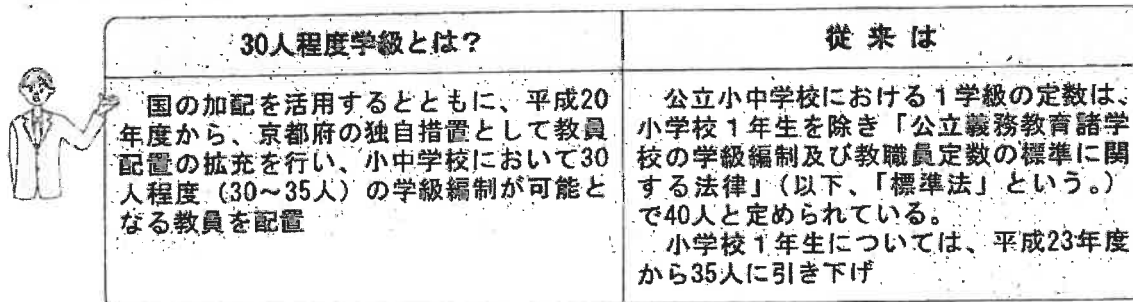 30人程度学級とは？
国の加配を活用するとともに、平成20
年度から、京都府の独自措置として教員
配置の拡充を行い、小中学校において30
人程度（30～35人）の学級編制が可能と
なる教員を配置
従来は
公立小中学校における１学級の定数は、
小学校１年生を除き「公立義務教育諸学
校の学級編制及び教職員定数の標準に関
する法律」（以下、「標準法」という。）
で40人と定められている。
小学校１年生については、平成23年度
から35人に引き下げ